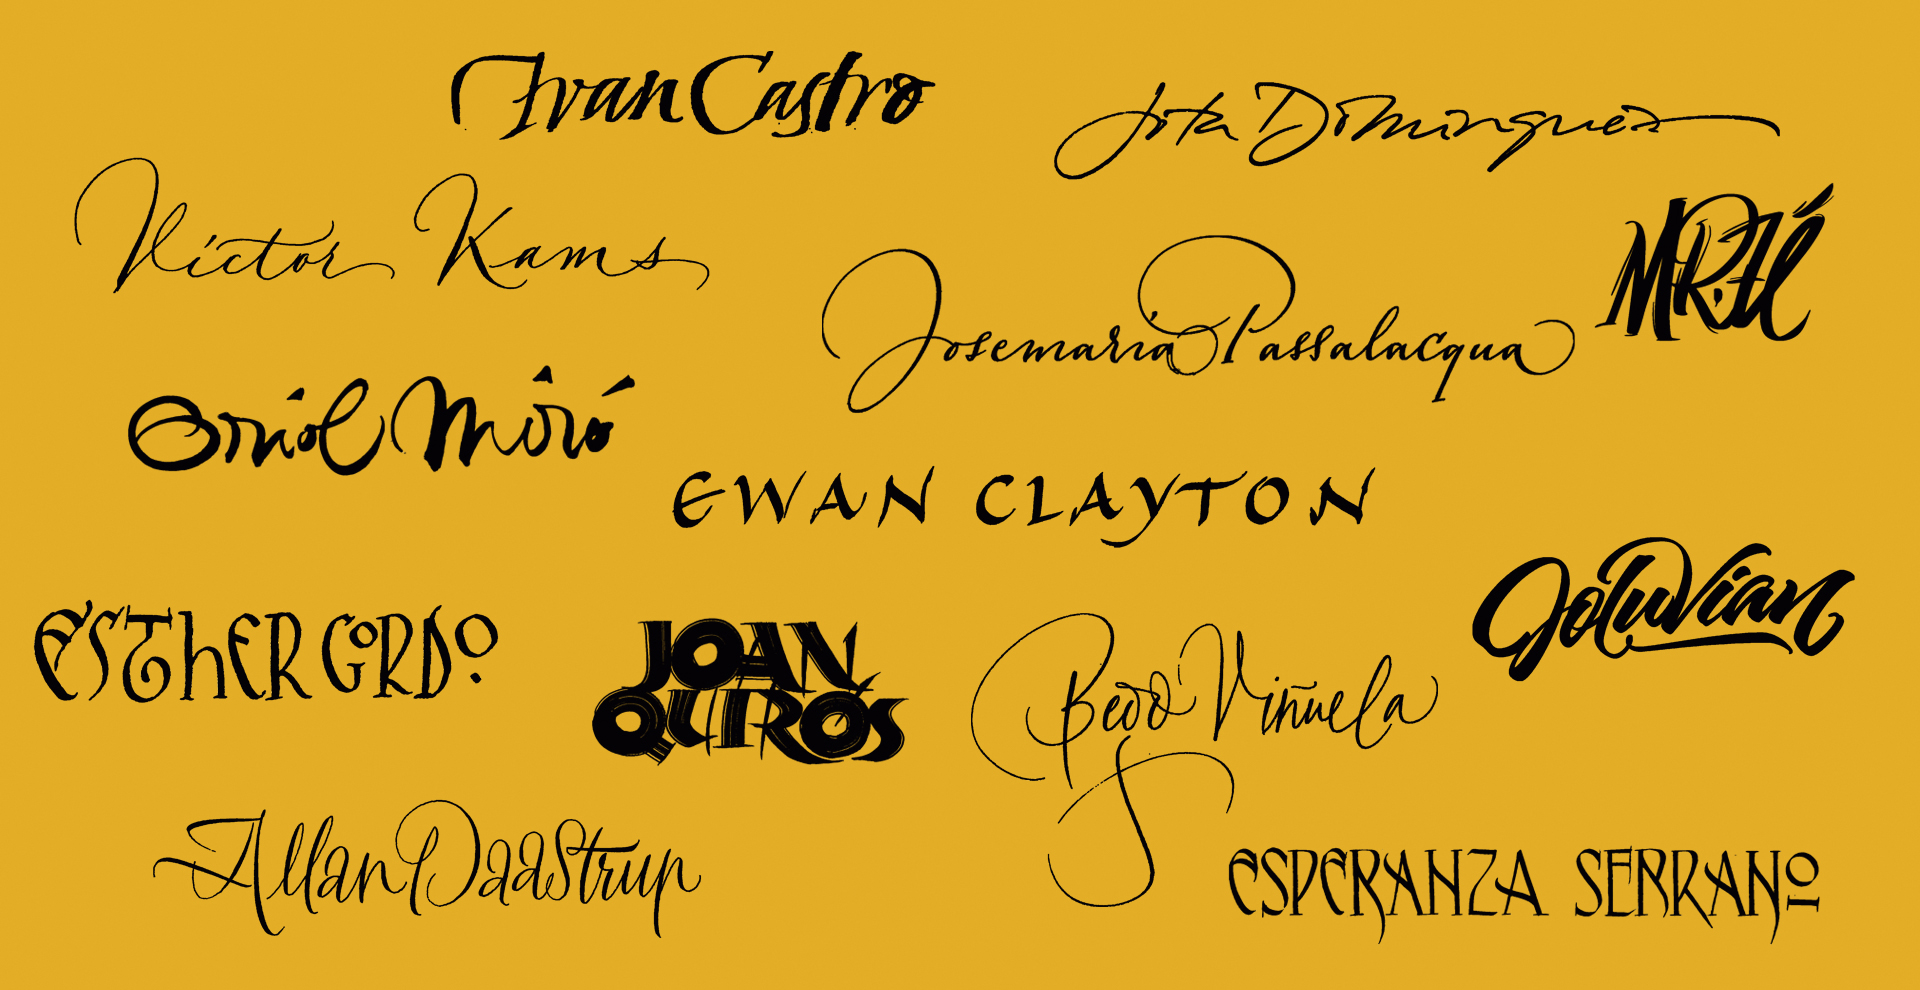 Ivan Castro
Jota Dominguez
Víctor Kams
MR.ZÉ
Josemaría Passalacqua
Oriol Miró
EWAN CLAYTON
Joluvian
ESTHER GORDO
JOAN
QUIRÓS
Bego Viñuela
Allan Daastrup
ESPERANZA SERRANO